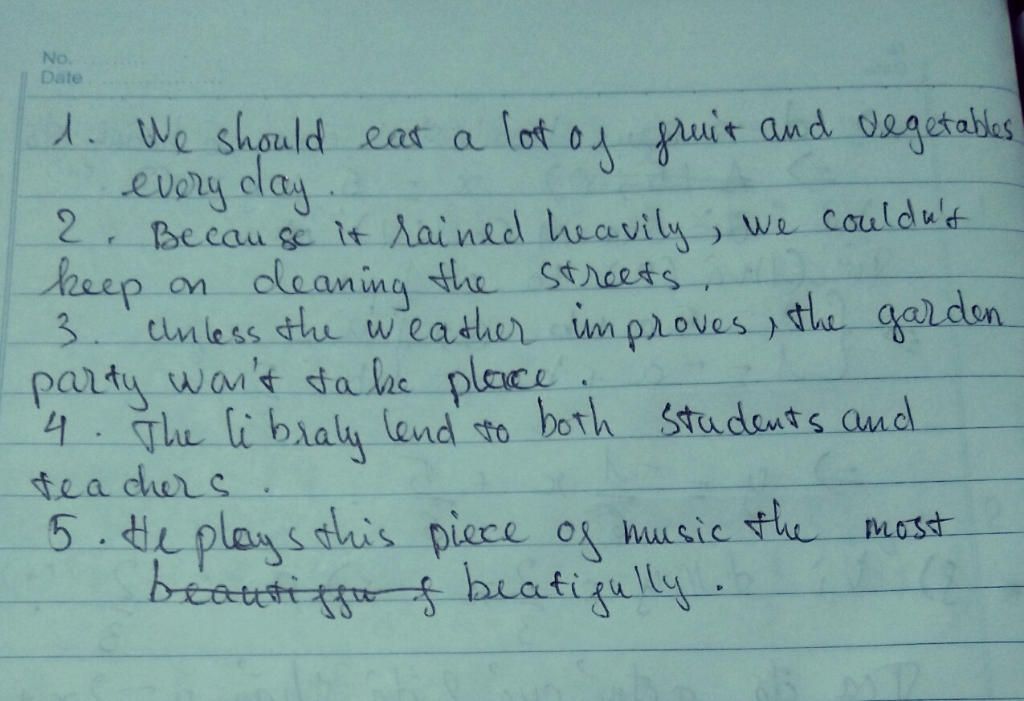 No.
Date
1. We should eat a lot of fruit and vegetables
every day.
2. Because it rained heavily, we couldn't
keep on cleaning the streets.
3. Unless the weather improves, the garden
party won't take place.
4. The libraly lend to both students and
teachers.
5. He plays this piece of music the most
beatifully.